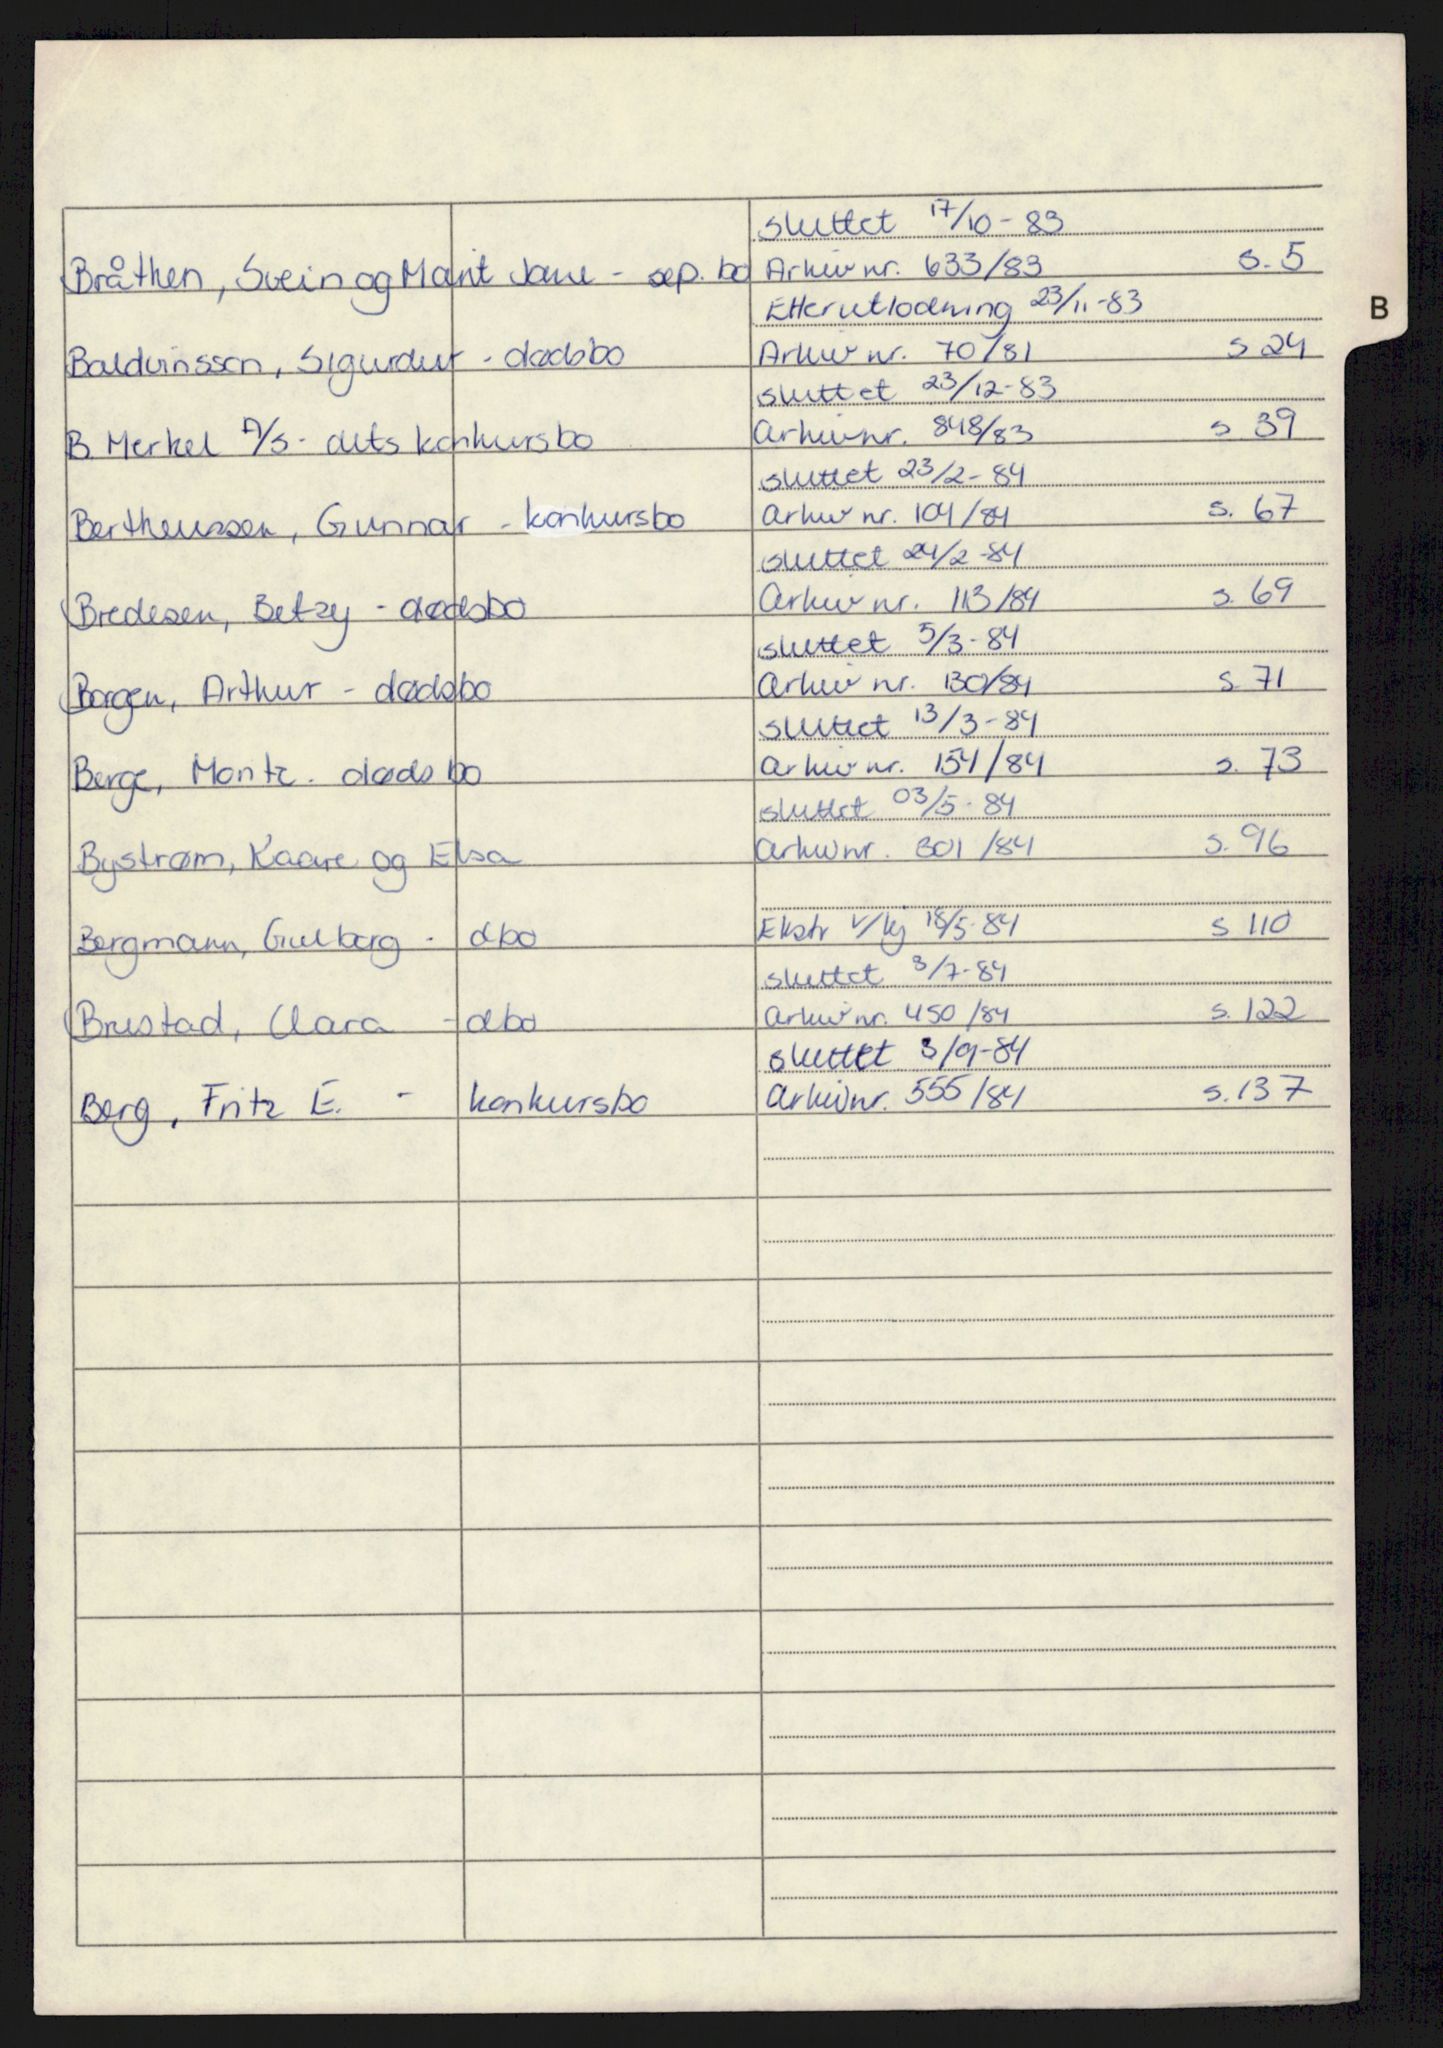 sluttet 17/10-83
Bråthen, Svein og Marit Jane - sep. bo Arkivnr. 633/83 s. 5
Etterutlodning 23/11-83
B
Baldvinsson, Sigurdur - dødsbo Arkiv nr. 70/81 s 24
sluttet 23/12-83
B. Merkel A/S - dets konkursbo Arkivnr. 848/83 s 39
sluttet 23/2-84
Bertheussen, Gunnar - konkursbo Arkiv nr. 104/84 s. 67
sluttet 24/2-84
Bredesen, Betzy - dødsbo Arkiv nr. 113/84 s. 69
sluttet 5/3-84
Borgen, Arthur - dødsbo Arkiv nr. 130/84 s. 71
sluttet 13/3-84
Berge, Moritz - dødsbo Arkiv nr. 154/84 s. 73
sluttet 03/5-84
Bystrøm, Kaare og Elsa Arkivnr. 301/84 s. 96
Bergmann, - dbo Ekstr v/kj 18/5-84 s 110
sluttet 3/7-84
Brustad, Clara - dbo Arkivnr. 450/84 s. 122
sluttet 3/9-84
Berg, Fritz E. - konkursbo Arkivnr. 555/84 s. 137